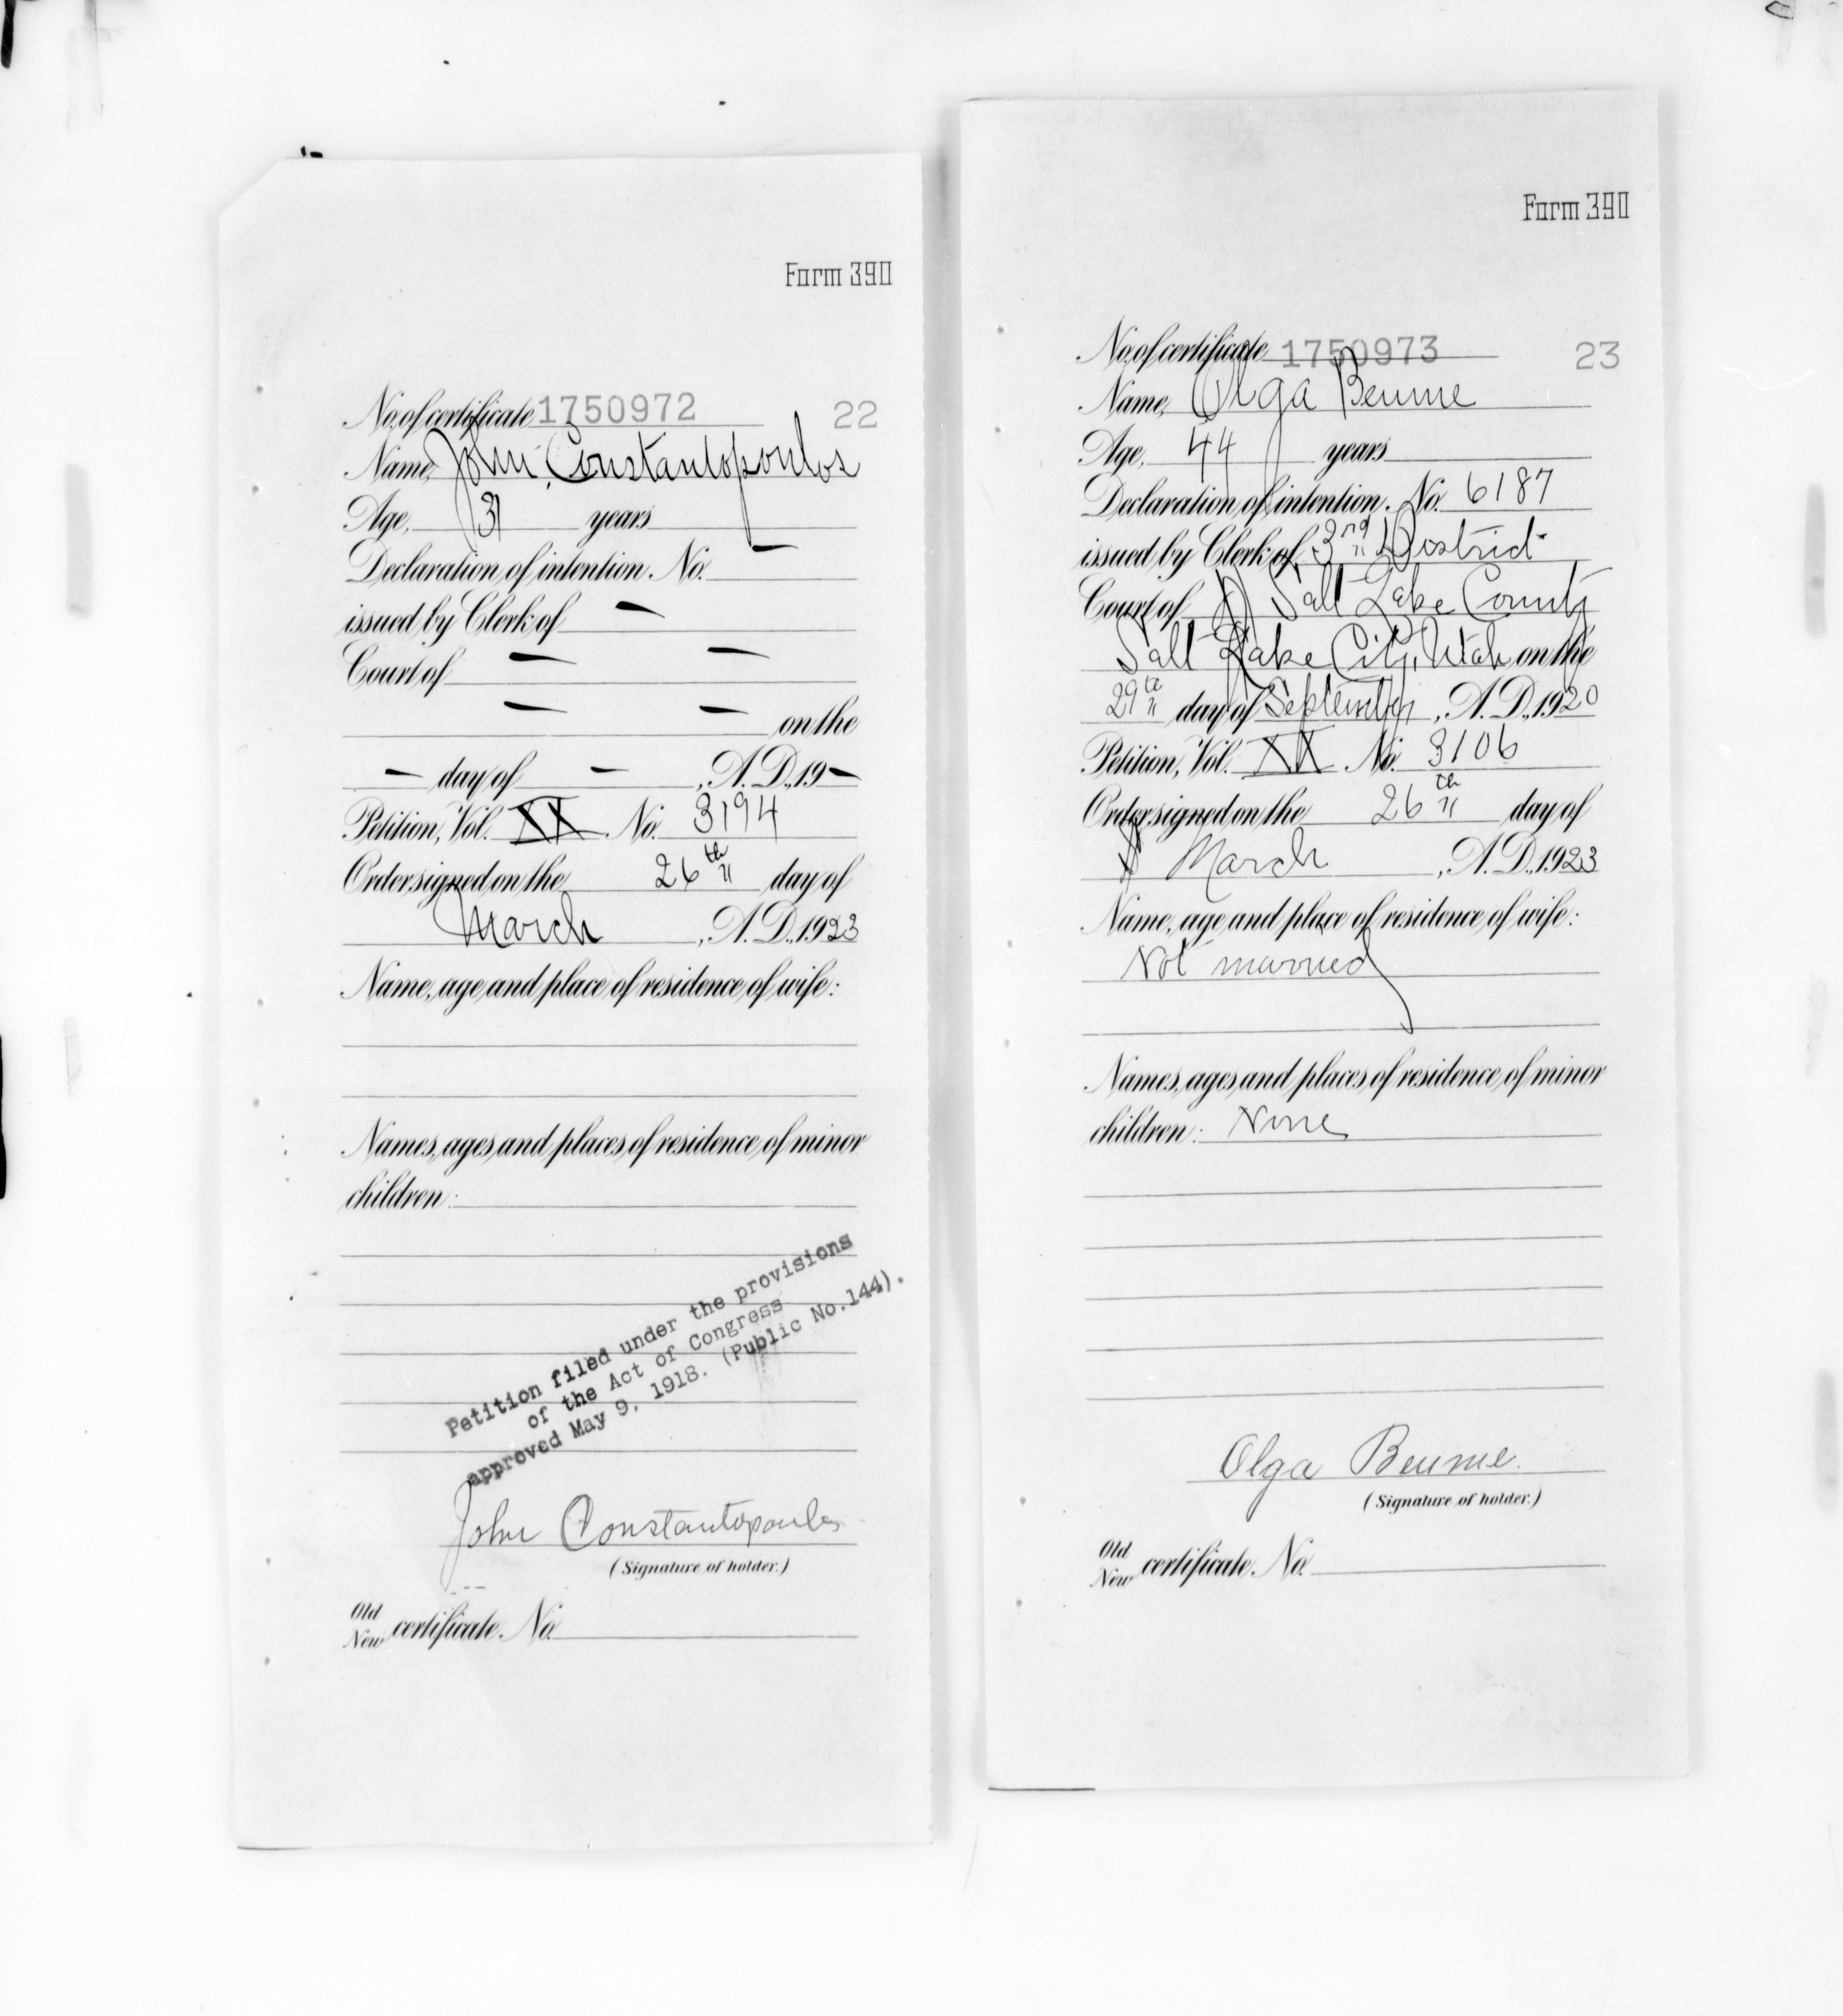 Form 390
No. of certificate 1750972 22
Name, John Constantopoulos
Age, 31 years
Declaration of intention No. —
issued by Clerk of —
Court of — —
— — on the
— day of — , A.D., 19—
Petition, Vol. XX No. 3194
Order signed on the 26th day of
March , A.D., 1923
Name, age and place of residence of wife:
Names, ages and places of residence of minor
children:
Petition filed under the provisions
of the Act of Congress
approved May 9, 1918. (Public No.144).
John Constantopoulos
(Signature of holder.)
Old
New certificate No.
Form 390
No. of certificate 1750973 23
Name, Olga Beume
Age, 44 years
Declaration of intention No. 6187
issued by Clerk of 3rd District
Court of Salt Lake County
Salt Lake City, Utah on the
29th day of September , A.D., 1920
Petition, Vol. XX No. 3106
Order signed on the 26th day of
March , A.D., 1923
Name, age and place of residence of wife:
Not married
Names, ages and places of residence of minor
children: None
Olga Beume.
(Signature of holder.)
Old
New certificate No.